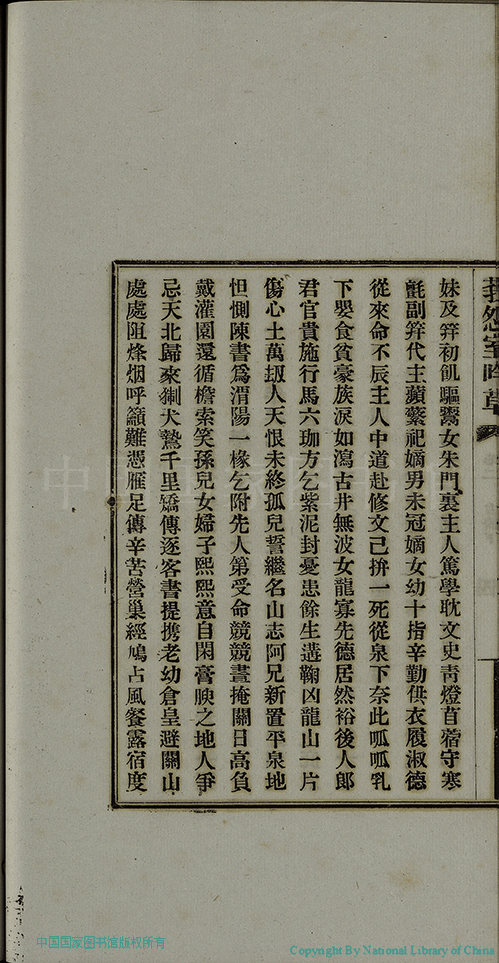 妹及笄初飢驅鬻女朱門裏主人篤學耽文史靑燈苜蓿守寒
氈副笄代主蘋蘩祀嫡男未冠嫡女幼十指辛勤供衣履淑德
從來命不辰主人中道赴修文已拚一死從泉下奈此呱呱乳
下嬰食貧豪族淚如瀉古井無波女龍寡先德居然裕後人郎
君官貴施行馬六珈方乞紫泥封憂患餘生遘鞠凶龍山一片
傷心土萬刼人天恨未終孤兒誓繼名山志阿兄新置平泉地
怛惻陳書爲渭陽一椽乞附先人第受命競競晝掩關日高負
戴灌園還循檐索笑孫兒女婦子熙熙意自閑膏腴之地人爭
忌天北歸來猘犬鷙千里矯傳逐客書提携老幼倉皇避關山
處處阻烽烟呼籲難憑雁足傳辛苦營巢經鳩占風餐露宿度
中国国家图书馆版权所有
Copyright By National Library of China